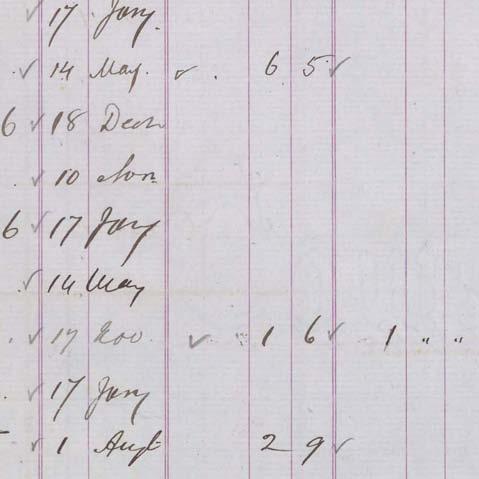 ✓ 17 Jany.
. ✓ 14 May. ✓ . 6 5 ✓
6 ✓ 18 Decr
. ✓ 10 Novr
6 ✓ 17 Jany
✓ 14 May
. ✓ 17 Nov. ✓ " 1 6 ✓ 1 " "
. ✓ 17 Jany
✓ 1 Augt 2 9 ✓